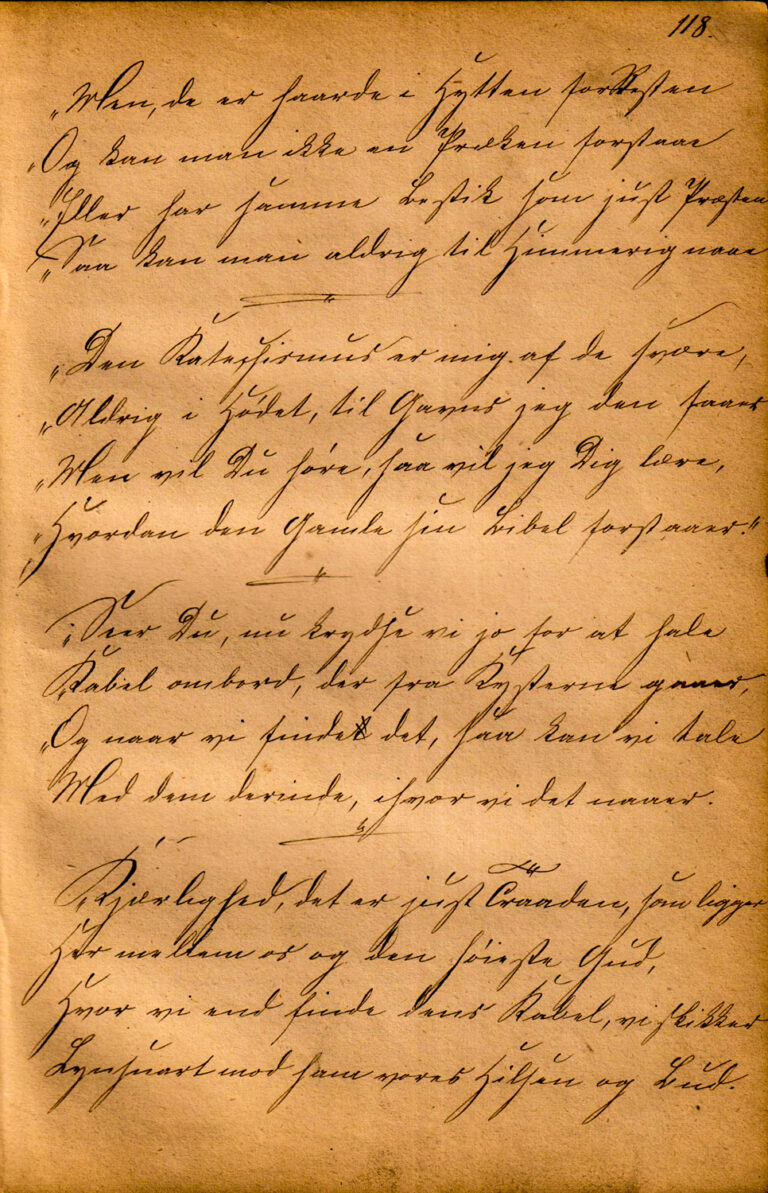 118.
„Men, de er haarde i Hytten forresten
„Og kan man ikke en Præken forstaae
„Eller har samme Bestik som just Præsten
„Saa kan man aldrig til Himmerig naae
„Den Katechismus er mig af de svære,
„Aldrig i Hodet, til Gavns jeg den faaer
„Men vil Du høre, saa vil jeg Dig lære,
„Hvordan den Gamle sin Bibel forstaaer."
„Seer Du, nu krydse vi jo for at hale
Kabel ombord, der fra Kysterne gaaer,
„Og naar vi finde det, saa kan vi tale
Med dem derinde, ihvor vi det naaer.
Kjærlighed, det er just Traaden, som ligger
Her mellem os og den høieste Gud,
Hvor vi end finde dens Kabel, vi skikker
Lynsnart mod ham vores Hilsen og Bud.